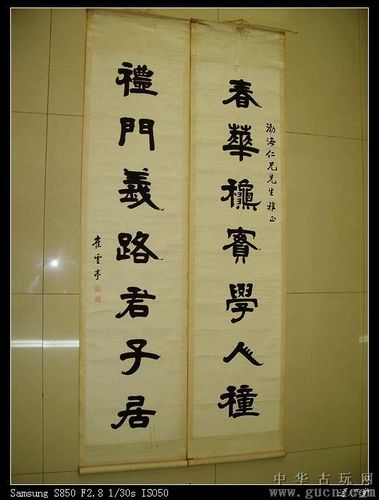 渤海仁兄先生雅正
春華龝實學人穜
禮門義路君子居
崔雲亭
中华古玩网
www.gucn.com
Samsung S850 F2.8 1/30s ISO50